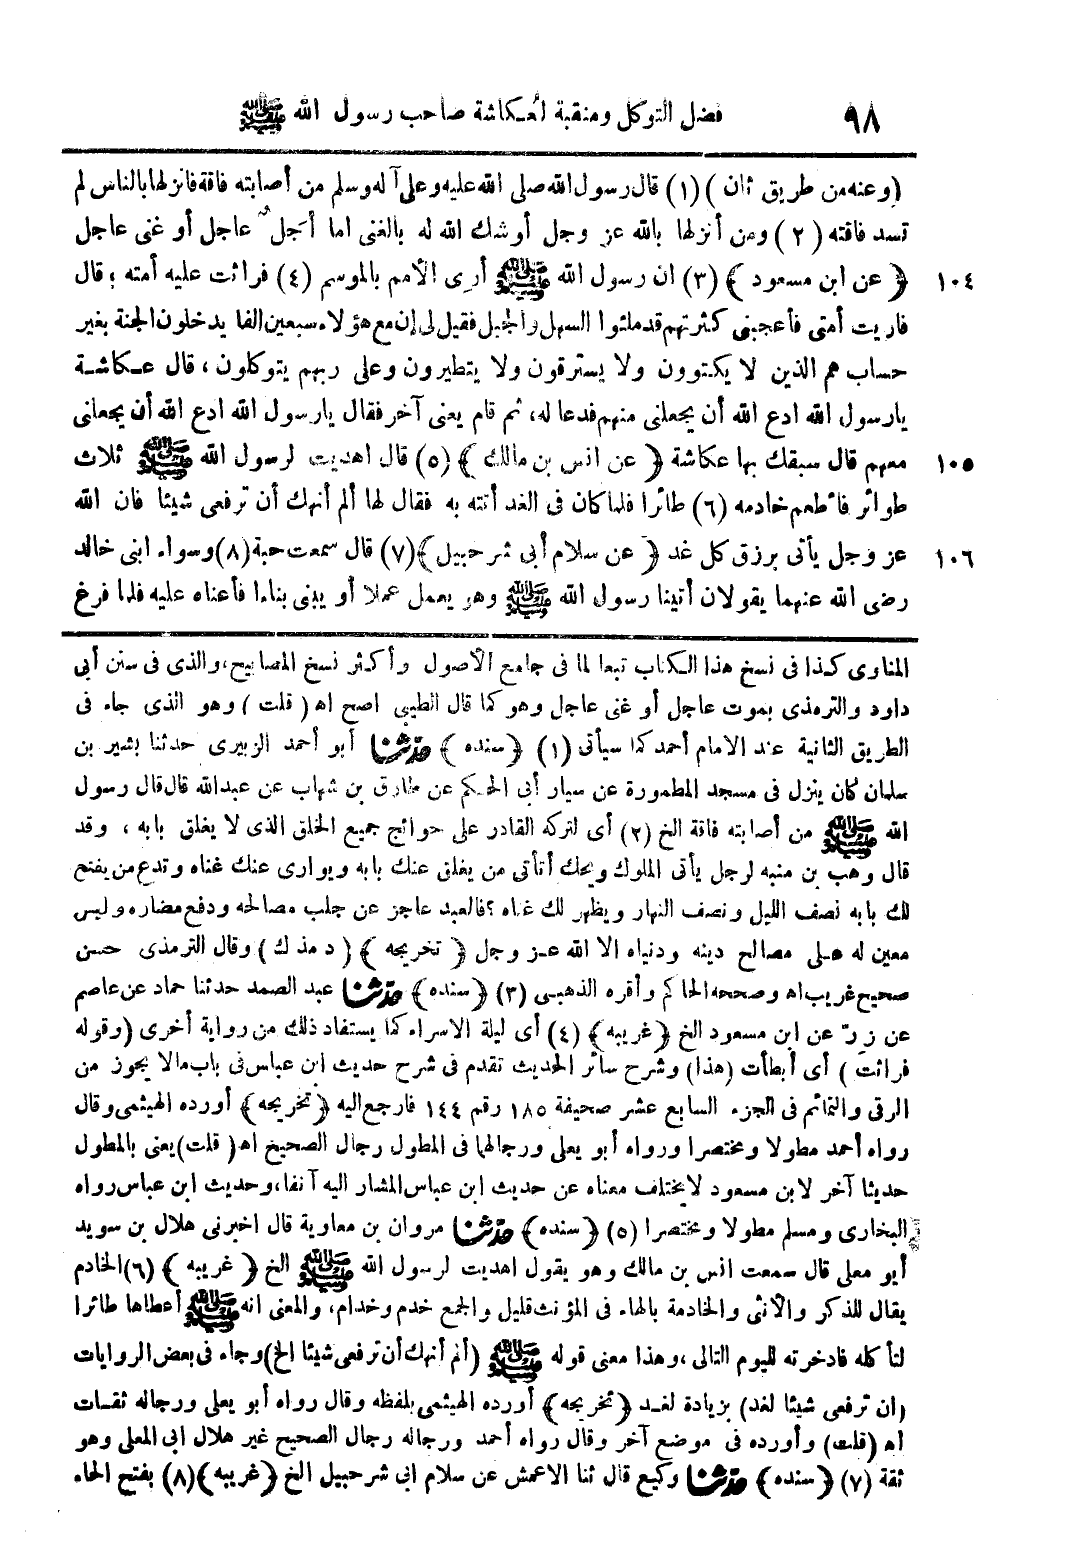 ٩٨ فضل التوكل ومنقبة لعكاشة صاحب رسول الله ﷺ
(وعنه من طريق ثان) (١) قال رسول الله صلى الله عليه وعلى آله وسلم من أصابته فاقة فانزلها بالناس لم
تسد فاقته (٢) ومن أنزلها بالله عز وجل أوشك الله له بالغنى اما أجل عاجل أو غنى عاجل
١٠٤ ﴿عن ابن مسعود﴾ (٣) ان رسول الله ﷺ أرى الأمم بالموسم (٤) فراثت عليه أمته ؛ قال
فاريت أمتى فأعجبنى كثرتهم قد ملئوا السهل والجبل فقيل لى إن مع هؤلاء سبعين الفا يدخلون الجنة بغير
حساب هم الذين لا يكتوون ولا يسترقون ولا يتطيرون وعلى ربهم يتوكلون ، قال عكاشة
يارسول الله ادع الله أن يجعلنى منهم فدعا له، ثم قام يعنى آخر فقال يارسول الله ادع الله أن يجعلنى
١٠٥ معهم قال سبقك بها عكاشة ﴿عن انس بن مالك﴾ (٥) قال اهديت لرسول الله ﷺ ثلاث
طوائر فأطعم خادمه (٦) طائرا فلما كان فى الغد أتته به فقال لها ألم أنهك أن ترفعى شيئا فان الله
١٠٦ عز وجل يأتى برزق كل غد ﴿عن سلام أبى شرحبيل﴾ (٧) قال سمعت حبة (٨) وسواء ابنى خالد
رضى الله عنهما يقولان أتينا رسول الله ﷺ وهو يعمل عملا أو يبنى بناءا فأعناه عليه فلما فرغ
المناوى كذا فى نسخ هذا الكتاب تبعا لما فى جامع الأصول وأكثر نسخ المصابيح، والذى فى سنن أبى
داود والترمذى بموت عاجل أو غنى عاجل وهو كما قال الطيبى اصح اه (قلت) وهو الذى جاء فى
الطريق الثانية عند الامام أحمد كما سيأتى (١) ﴿سنده﴾ حدثنا أبو أحمد الزبيرى حدثنا بشير بن
سلمان كان ينزل فى مسجد المطمورة عن سيار أبى الحكم عن طارق بن شهاب عن عبدالله قال قال رسول
الله ﷺ من أصابته فاقة الخ (٢) أى لتركه القادر على حوائج جميع الخلق الذى لا يغلق بابه ، وقد
قال وهب بن منبه لرجل يأتى الملوك ويحك أتأتى من يغلق عنك بابه ويوارى عنك غناه وتدع من يفتح
لك بابه نصف الليل ونصف النهار ويظهر لك غناه ؟ فالعبد عاجز عن جلب مصالحه ودفع مضاره وليس
معين له على مصالح دينه ودنياه الا الله عز وجل ﴿تخريجه﴾ (د مذ ك) وقال الترمذى حسن
صحيح غريب اه وصححه الحاكم وأقره الذهبى (٣) ﴿سنده﴾ حدثنا عبد الصمد حدثنا حماد عن عاصم
عن زر عن ابن مسعود الخ ﴿غريبه﴾ (٤) أى ليلة الاسراء كما يستفاد ذلك من رواية أخرى (وقوله
فراثت) أى أبطأت (هذا) وشرح سائر الحديث تقدم فى شرح حديث ابن عباس فى باب مالا يجوز من
الرقى والتمائم فى الجزء السابع عشر صحيفة ١٨٥ رقم ١٤٤ فارجع اليه ﴿تخريجه﴾ أورده الهيثمى وقال
رواه أحمد مطولا ومختصرا ورواه أبو يعلى ورجالها فى المطول رجال الصحيح اه (قلت) يعنى بالمطول
حديثا آخر لابن مسعود لا يختلف معناه عن حديث ابن عباس المشار اليه آنفا، وحديث ابن عباس رواه
البخارى ومسلم مطولا ومختصرا (٥) ﴿سنده﴾ حدثنا مروان بن معاوية قال اخبرنى هلال بن سويد
أبو معلى قال سمعت انس بن مالك وهو يقول اهديت لرسول الله ﷺ الخ ﴿غريبه﴾ (٦) الخادم
يقال للذكر والأنثى والخادمة بالهاء فى المؤنث قليل والجمع خدم وخدام، والمعنى انه ﷺ أعطاها طائرا
لتأكله فادخرته لليوم التالى، وهذا معنى قوله ﷺ (ألم أنهك أن ترفعى شيئا الخ) وجاء فى بعض الروايات
(ان ترفعى شيئا لغد) بزيادة لغد ﴿تخريجه﴾ أورده الهيثمى بلفظه وقال رواه أبو يعلى ورجاله ثقات
اه (قلت) وأورده فى موضع آخر وقال رواه أحمد ورجاله رجال الصحيح غير هلال ابى المعلى وهو
ثقة (٧) ﴿سنده﴾ حدثنا وكيع قال ثنا الاعمش عن سلام ابى شرحبيل الخ ﴿غريبه﴾ (٨) بفتح الحاء